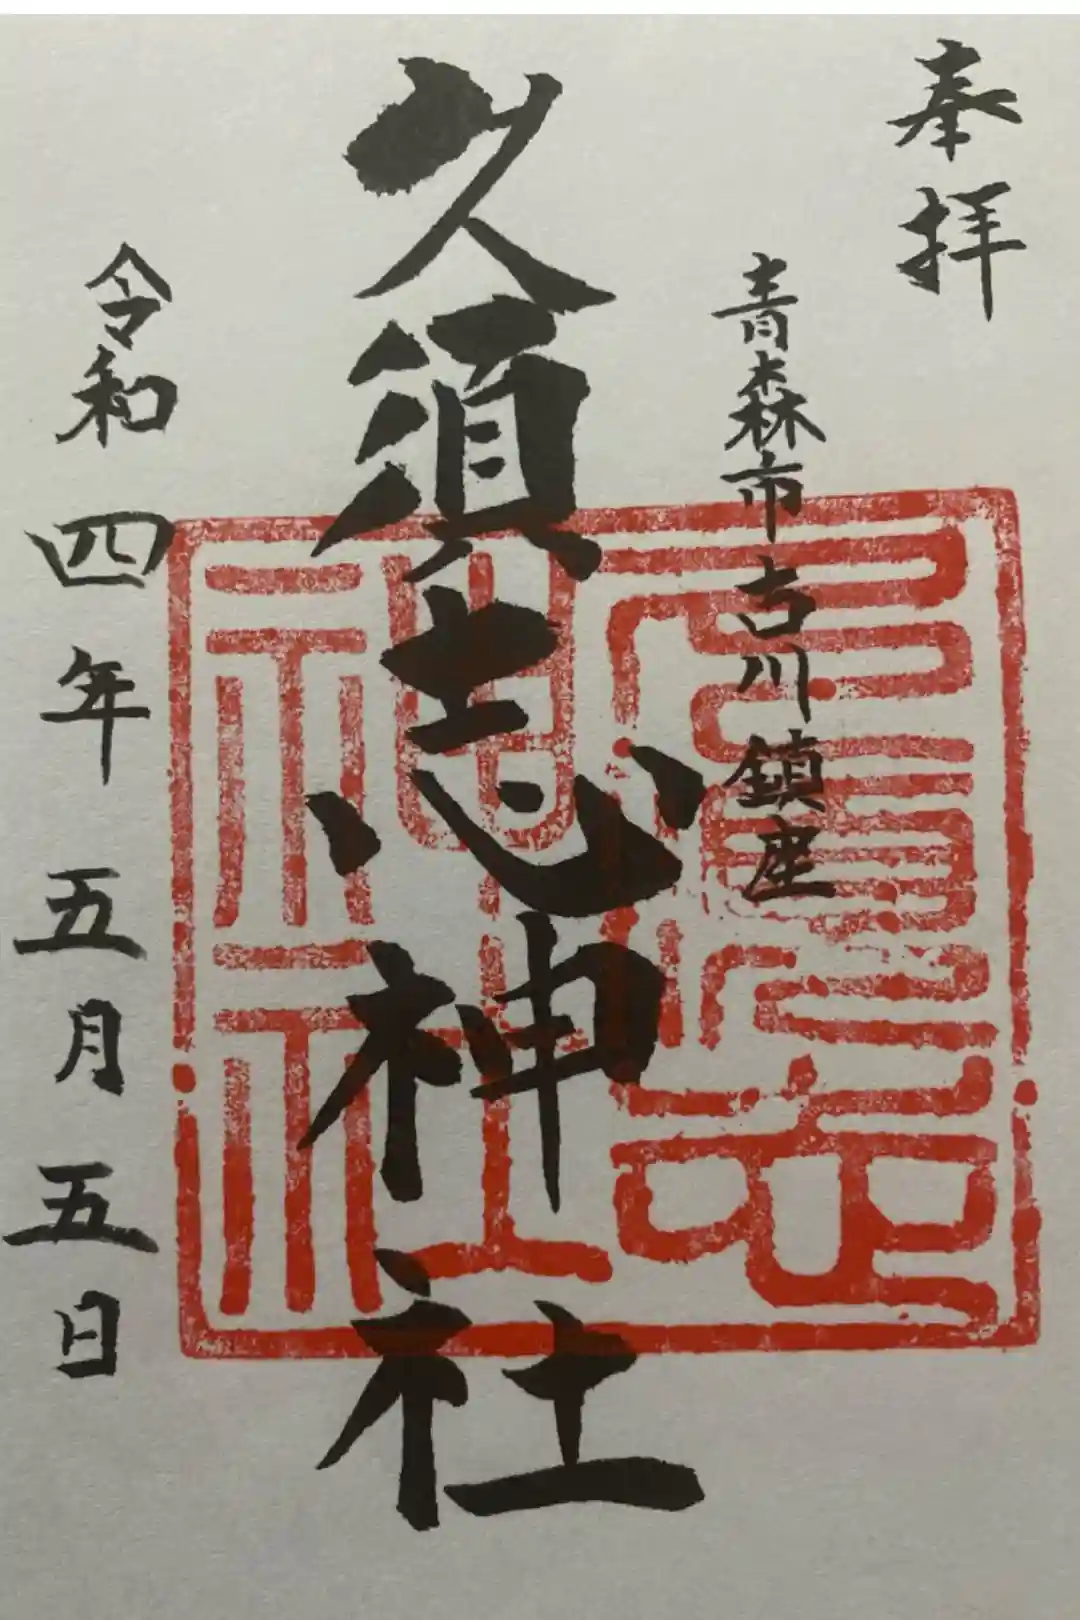 奉拝
青森市古川鎮座
久須志神社
令和四年五月五日